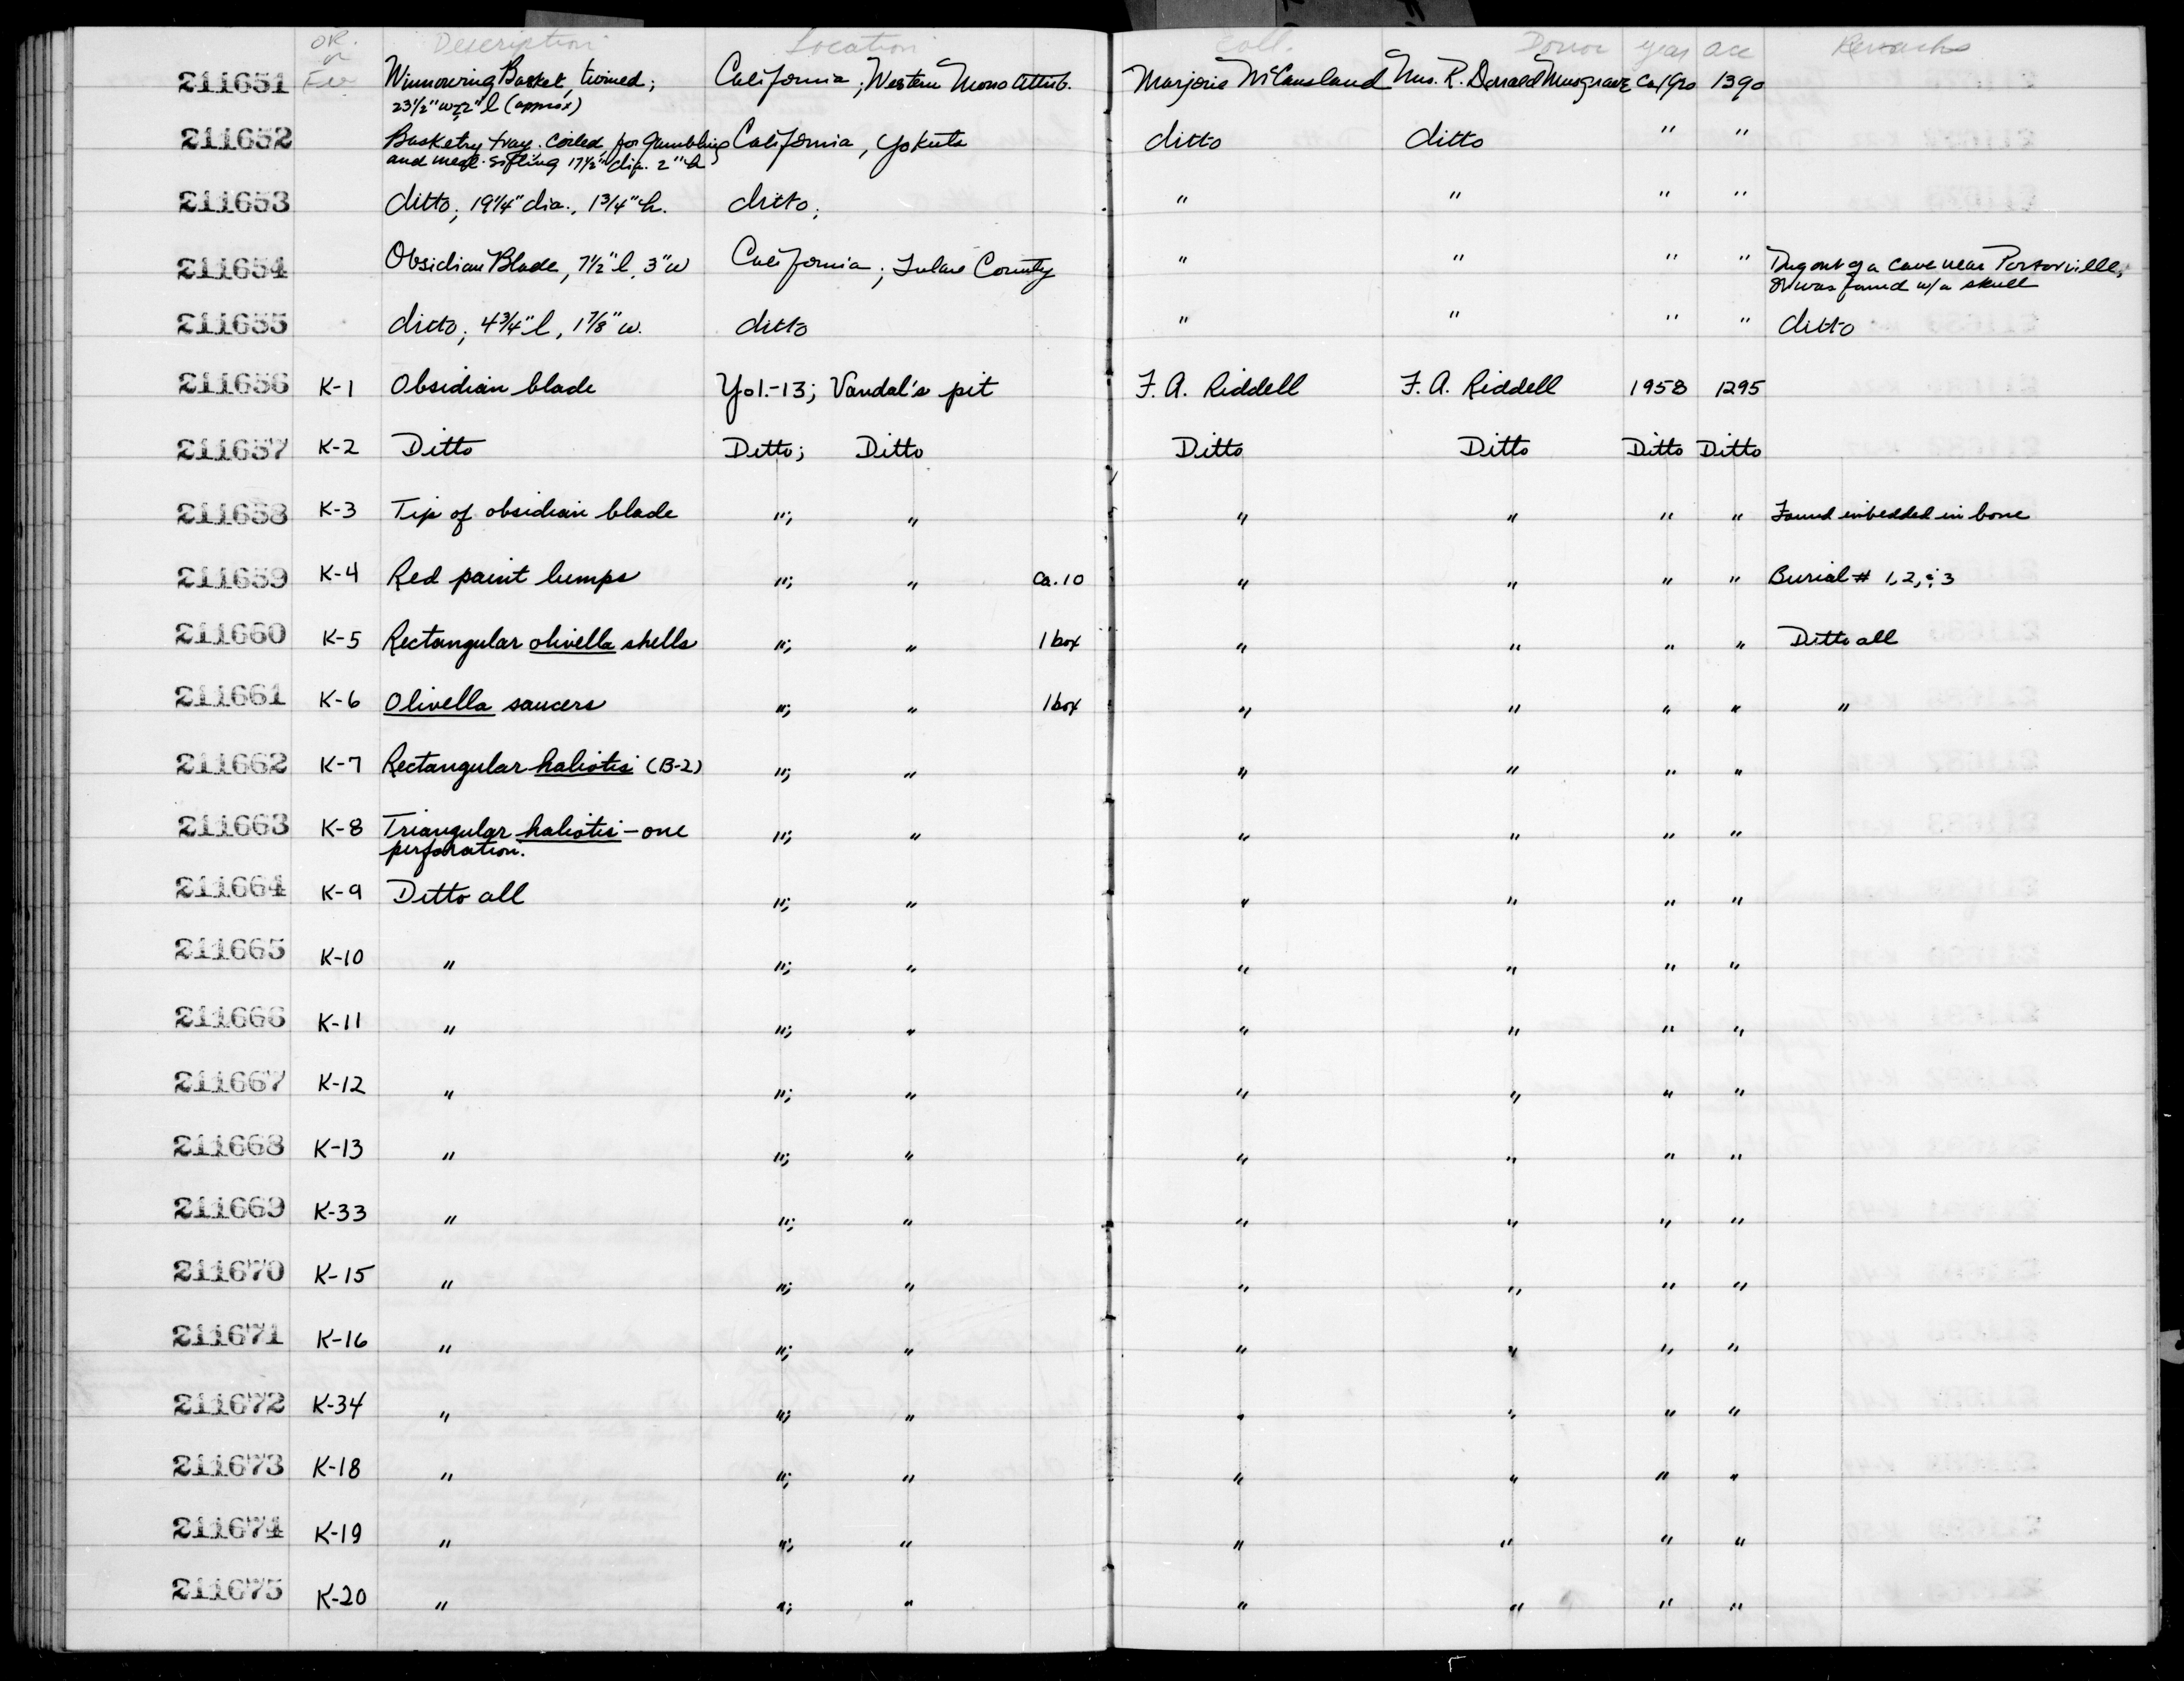 OR. Description Location Coll. Donor year acc Remarks
or
211651 Winnowing Basket, twined; California; Western Mono Attrib. Marjorie McCausland Mrs. R. Donald Musgrave 1390
23 1/2" w 22" l (approx)
211652 Basketry tray. Coiled, for gambling California, Yokuts ditto ditto " "
and meal-sifting 17 1/2" dia. 2" h
211653 ditto; 19 1/4" dia., 1 3/4" h. ditto; " " " "
211654 Obsidian Blade, 7 1/2" l, 3" w California; Tulare County " " " " Dug out of a cave near Porterville,
was found w/a skull
211655 ditto; 4 3/4" l, 1 7/8" w. ditto " " " " ditto
211656 K-1 Obsidian blade Yol.-13; Vandal's pit F. A. Riddell F. A. Riddell 1958 1295
211657 K-2 Ditto Ditto; Ditto Ditto Ditto Ditto Ditto
211658 K-3 Tip of obsidian blade "; " " " " " Found imbedded in bone
211659 K-4 Red paint lumps "; " ca. 10 " " " " Burial # 1, 2, & 3
211660 K-5 Rectangular olivella shells "; " 1 box " " " " Ditto all
211661 K-6 Olivella saucers "; " 1 box " " " " "
211662 K-7 Rectangular haliotis (B-2) "; " " " " "
211663 K-8 Triangular haliotis - one "; " " " " "
perforation.
211664 K-9 Ditto all "; " " " " "
211665 K-10 " "; " " " " "
211666 K-11 " "; " " " " "
211667 K-12 " "; " " " " "
211668 K-13 " "; " " " " "
211669 K-33 " "; " " " " "
211670 K-15 " "; " " " " "
211671 K-16 " "; " " " " "
211672 K-34 " "; " " " " "
211673 K-18 " "; " " " " "
211674 K-19 " "; " " " " "
211675 K-20 " "; " " " " "